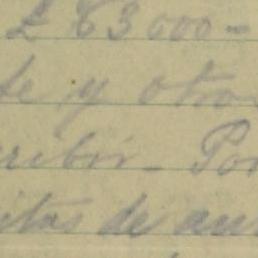 £ 63000-
te y otros
cribir - Por
itas de au